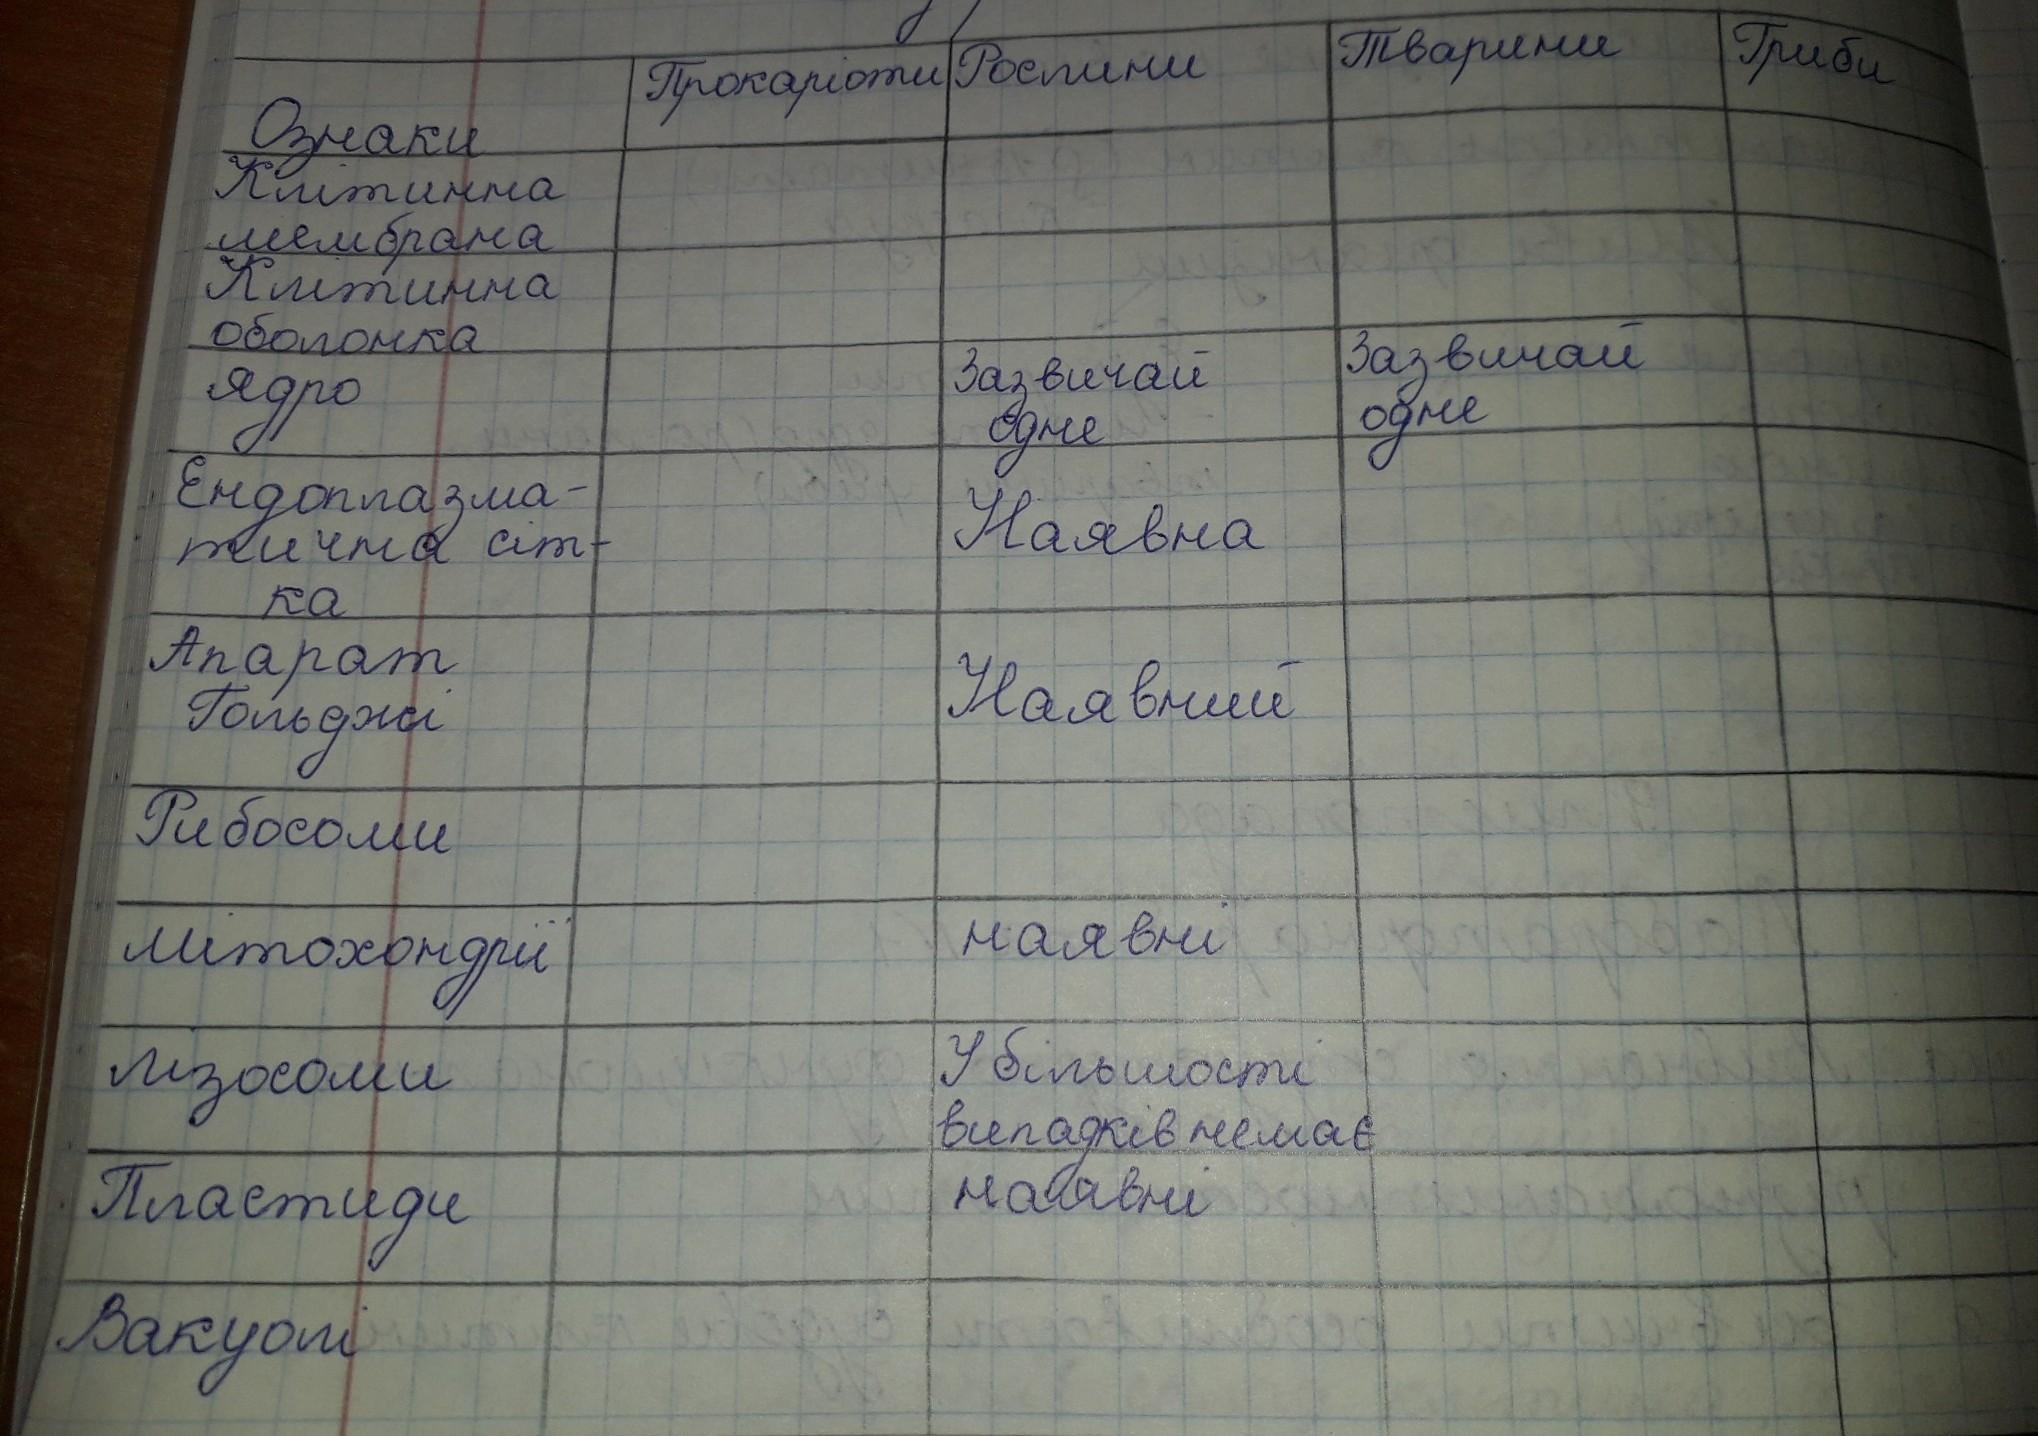 Прокаріоти Рослини Тварини Гриби
Ознаки
Клітинна
мембрана
Клітинна
оболонка
Ядро Зазвичай Зазвичай
одне одне
Ендоплазма-
тична сіт- Наявна
ка
Апарат
Гольджі Наявний
Рибосоми
Мітохондрії наявні
Лізосоми У більшості
випадків немає
Пластиди наявні
Вакуолі